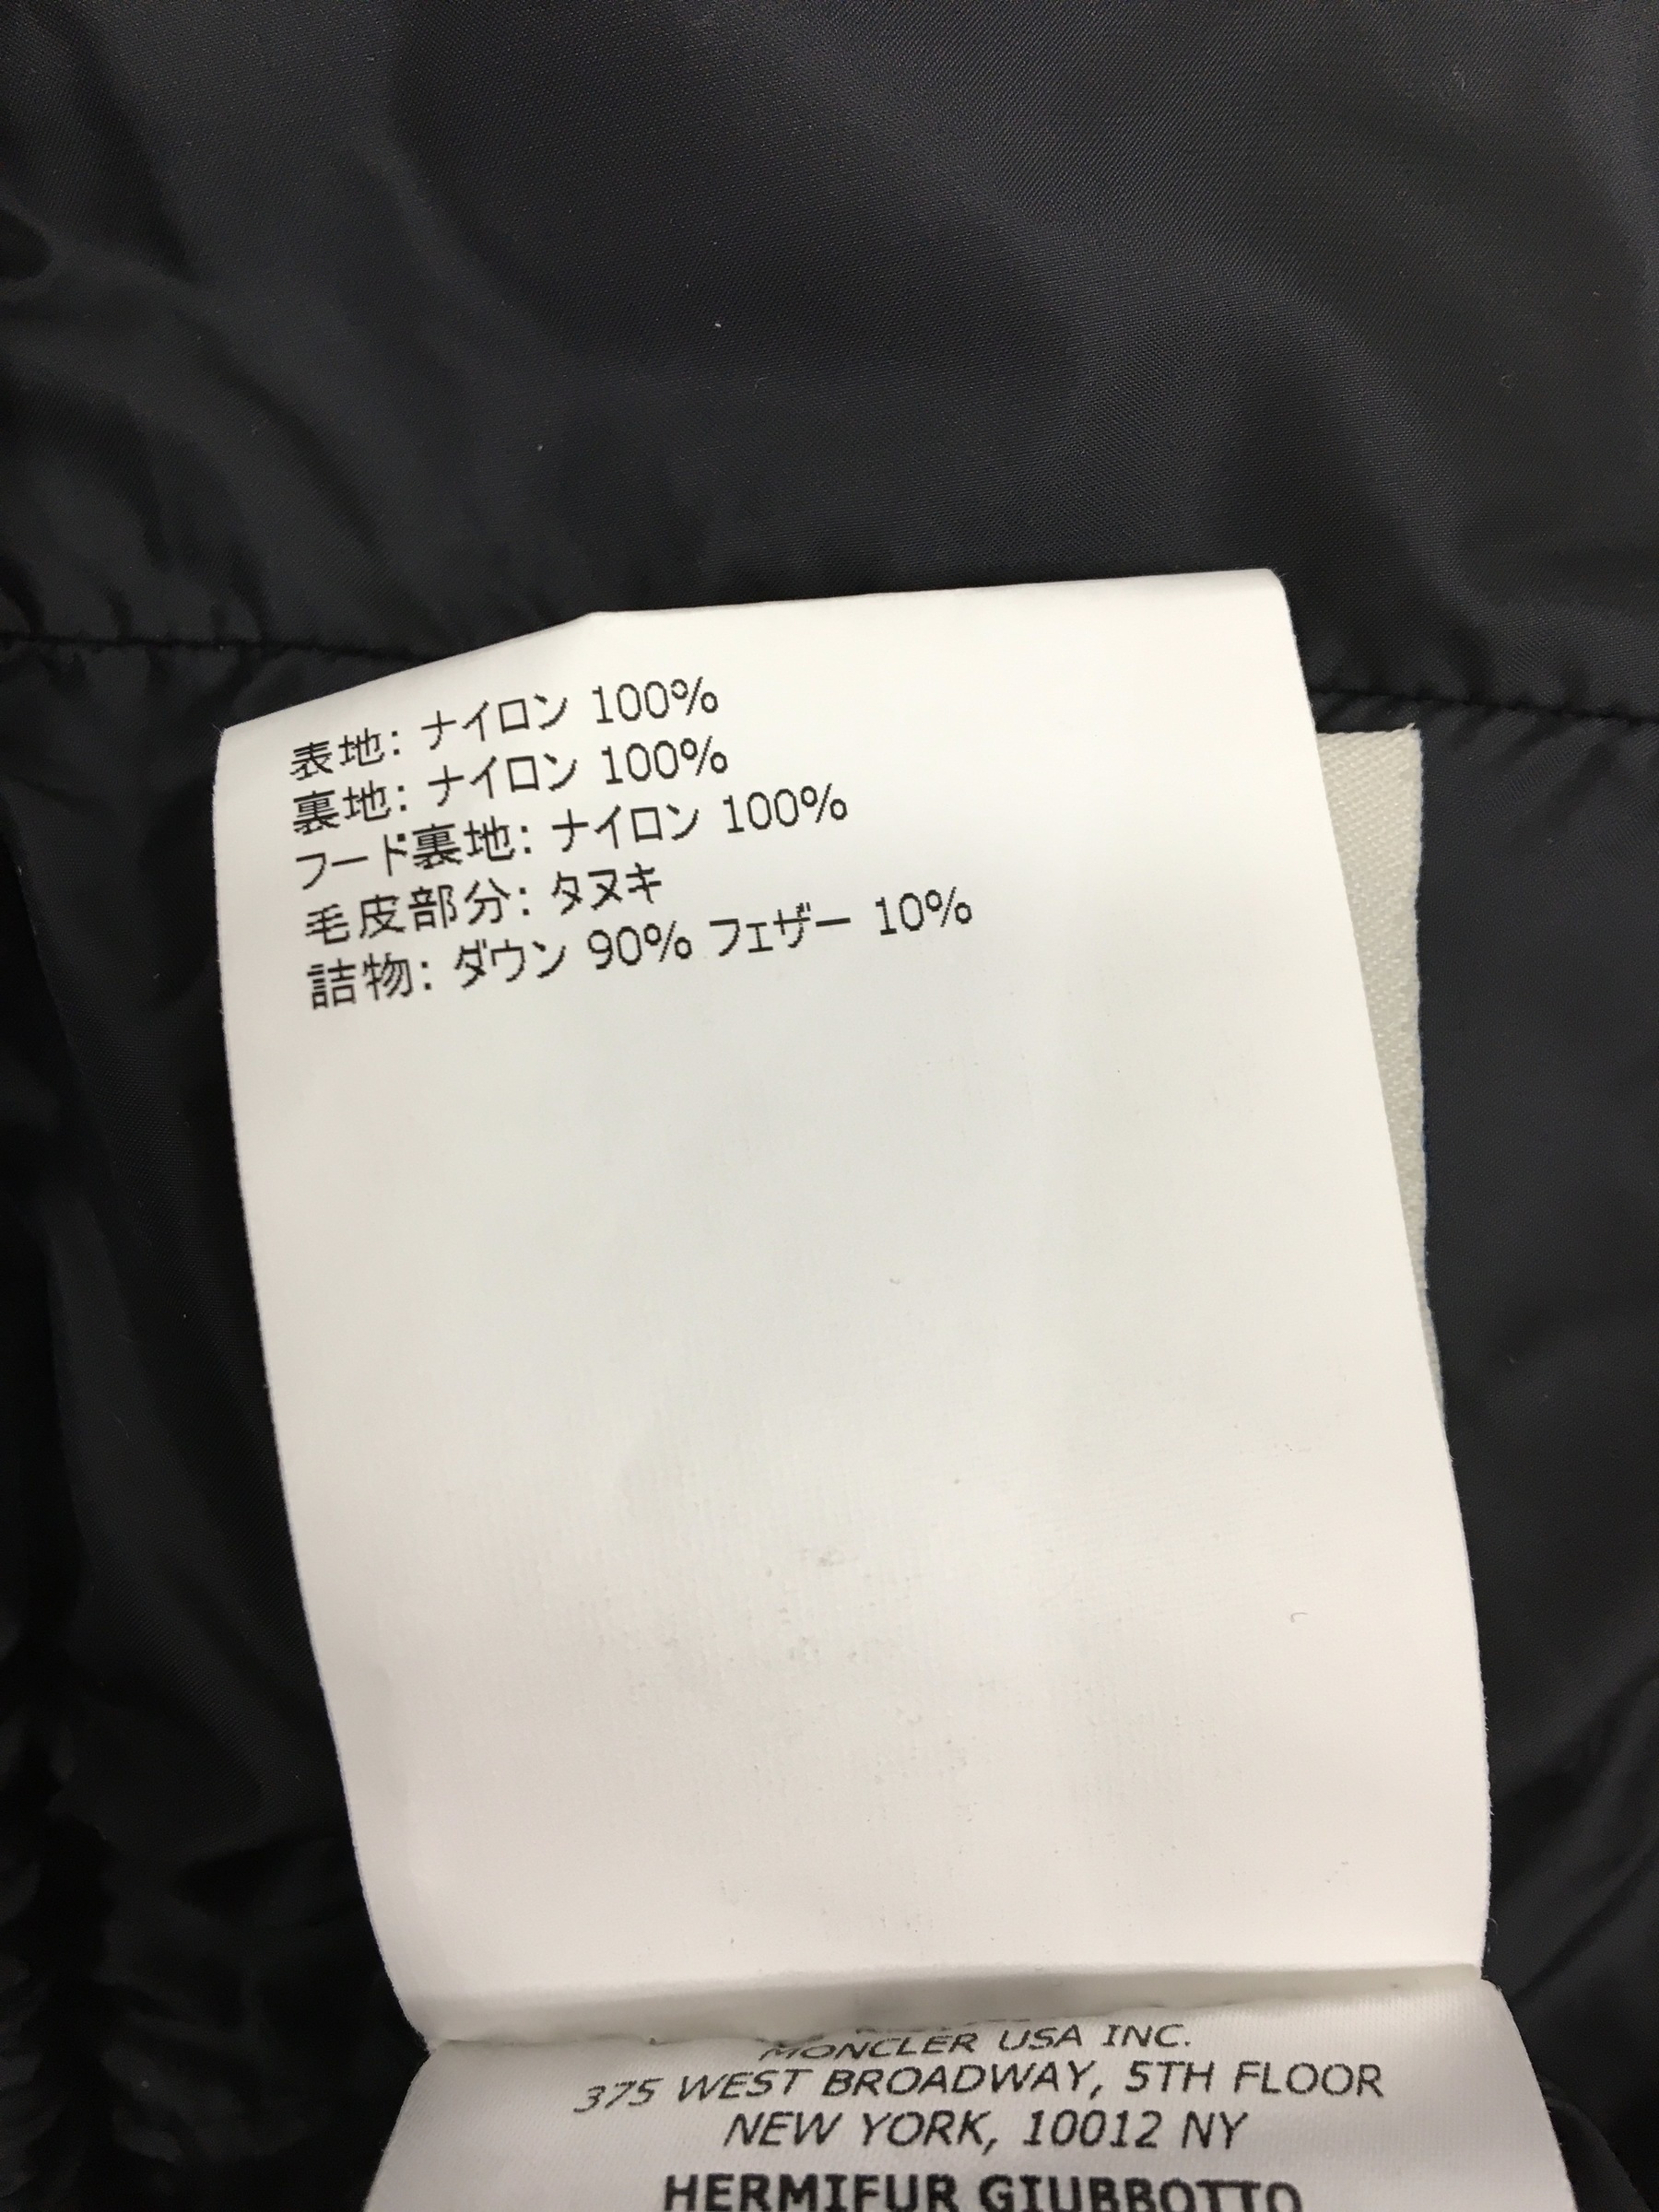 表地: ナイロン 100%
裏地: ナイロン 100%
フード裏地: ナイロン 100%
毛皮部分: タヌキ
詰物: ダウン 90% フェザー 10%
MONCLER USA INC.
375 WEST BROADWAY, 5TH FLOOR
NEW YORK, 10012 NY
HERMIFUR GIUBBOTTO